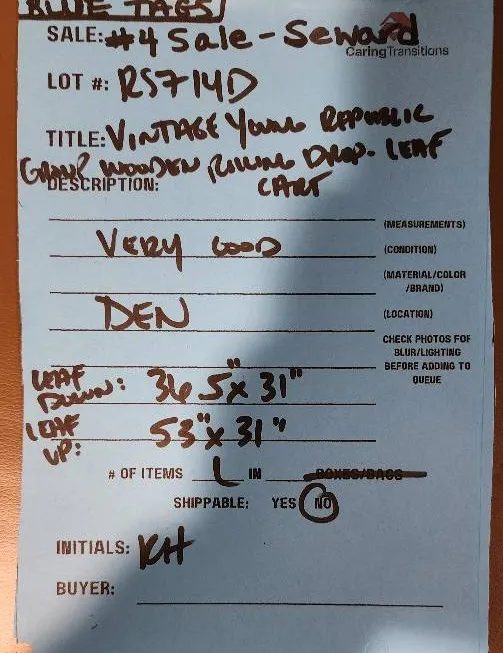 BLUE TAGS
SALE: #4 Sale - Seward
CaringTransitions
LOT #: RS714D
TITLE: VINTAGE YOUNG REPUBLIC
GROUP WOODEN ROLLING DROP-LEAF
CART
DESCRIPTION:
(MEASUREMENTS)
VERY GOOD (CONDITION)
(MATERIAL/COLOR
/BRAND)
DEN (LOCATION)
CHECK PHOTOS FOR
BLUR/LIGHTING
BEFORE ADDING TO
QUEUE
LEAF
DOWN: 36.5" x 31"
LEAF
UP: 53" x 31"
# OF ITEMS 1 IN BOXES/BAGS
SHIPPABLE: YES NO
INITIALS: KH
BUYER: